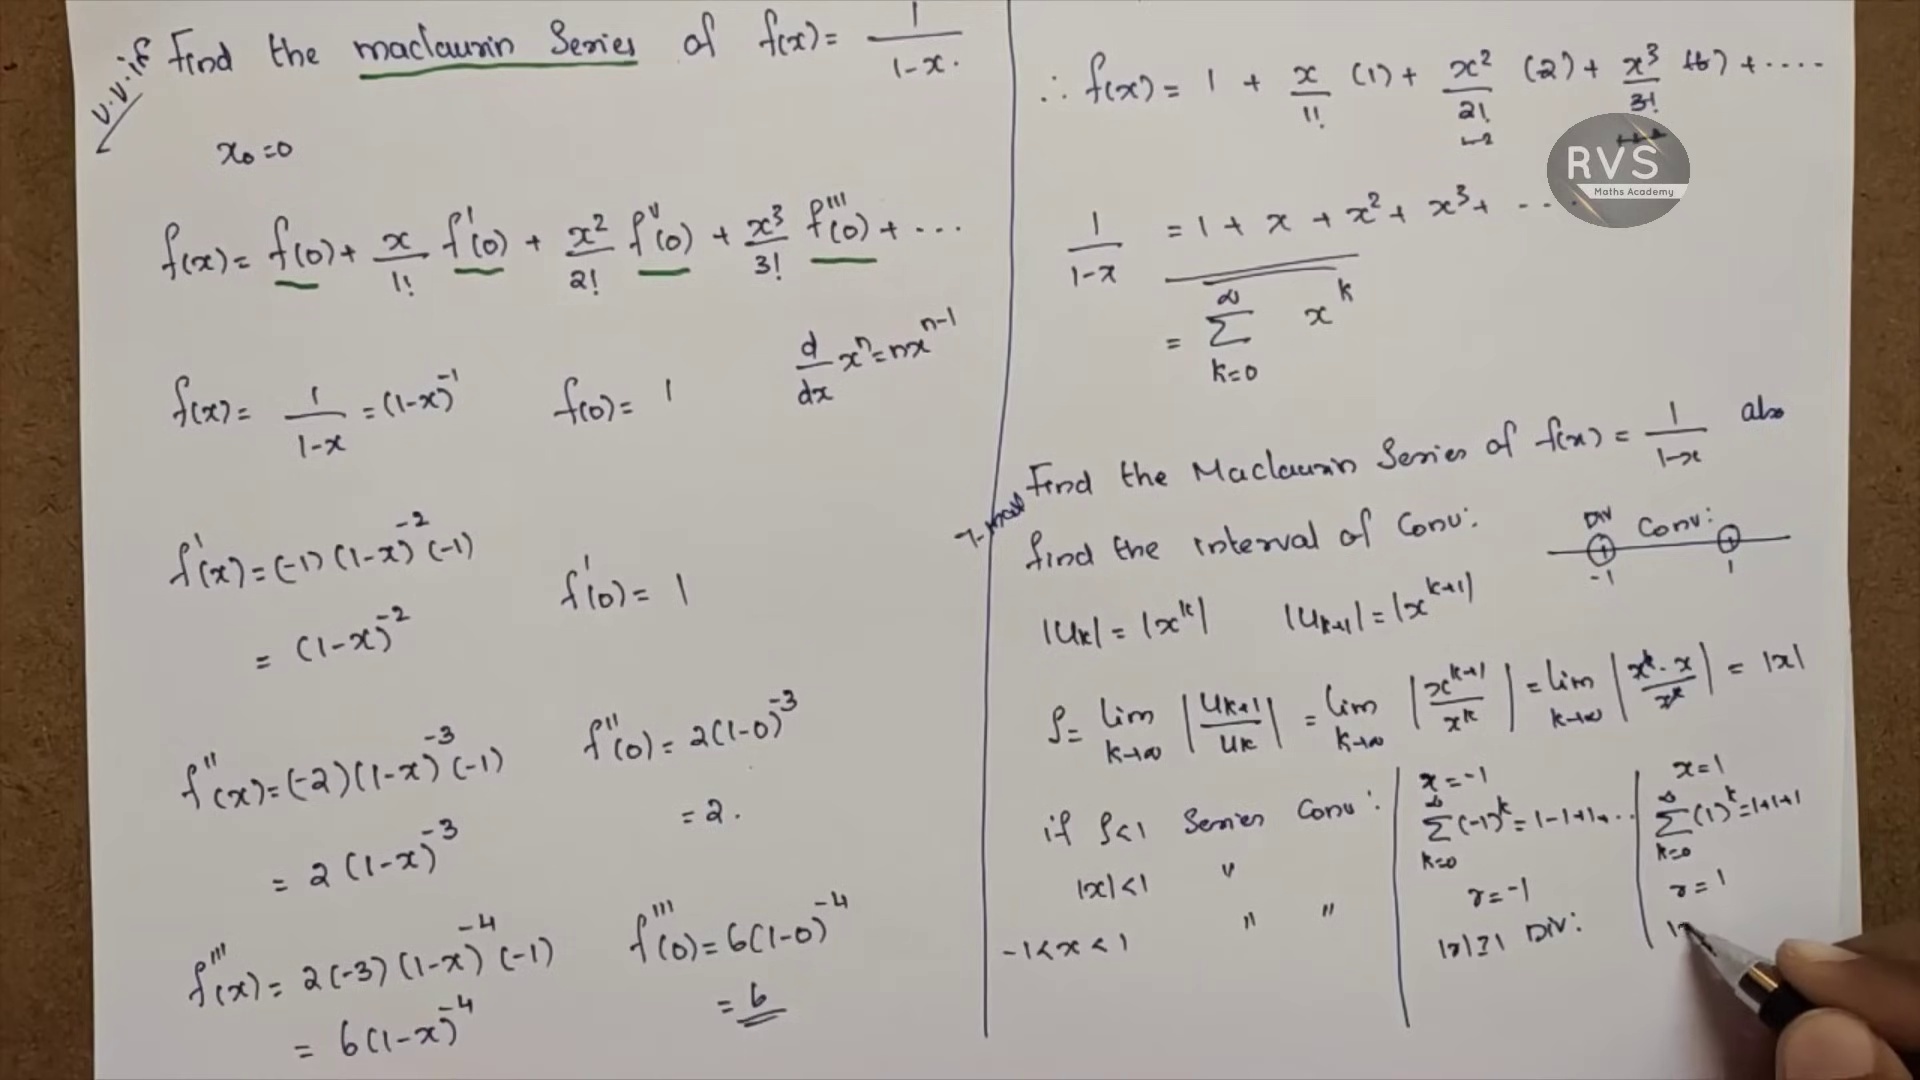 v.v.if Find the maclaurin Series of f(x) = 1/(1-x).
x₀ = 0
f(x) = f(0) + x/1! f'(0) + x²/2! f''(0) + x³/3! f'''(0) + ...
f(x) = 1/(1-x) = (1-x)⁻¹ f(0) = 1 d/dx xⁿ = nxⁿ⁻¹
f'(x) = (-1)(1-x)⁻²(-1)
= (1-x)⁻² f'(0) = 1
f''(x) = (-2)(1-x)⁻³(-1) f''(0) = 2(1-0)⁻³
= 2(1-x)⁻³ = 2.
f'''(x) = 2(-3)(1-x)⁻⁴(-1) f'''(0) = 6(1-0)⁻⁴
= 6(1-x)⁻⁴ = 6
∴ f(x) = 1 + x/1! (1) + x²/2! (2) + x³/3! (6) + ....
RVS
Maths Academy
1/(1-x) = 1 + x + x² + x³ + ...
= ∞ Σ k=0 xᵏ
Find the Maclaurin Series of f(x) = 1/(1-x) also
find the interval of Conv:
Div Conv:
-1 1
|uₖ| = |xᵏ| |uₖ₊₁| = |xᵏ⁺¹|
ρ = lim k→∞ |uₖ₊₁/uₖ| = lim k→∞ |xᵏ⁺¹/xᵏ| = lim k→∞ |xᵏ·x/xᵏ| = |x|
if ρ<1 Series Conv:
|x|<1 "
-1<x<1 " "
x = -1
∞ Σ k=0 (-1)ᵏ = 1-1+1...
r = -1
|r|≥1 Div:
x = 1
∞ Σ k=0 (1)ᵏ = 1+1+1
r = 1
|r